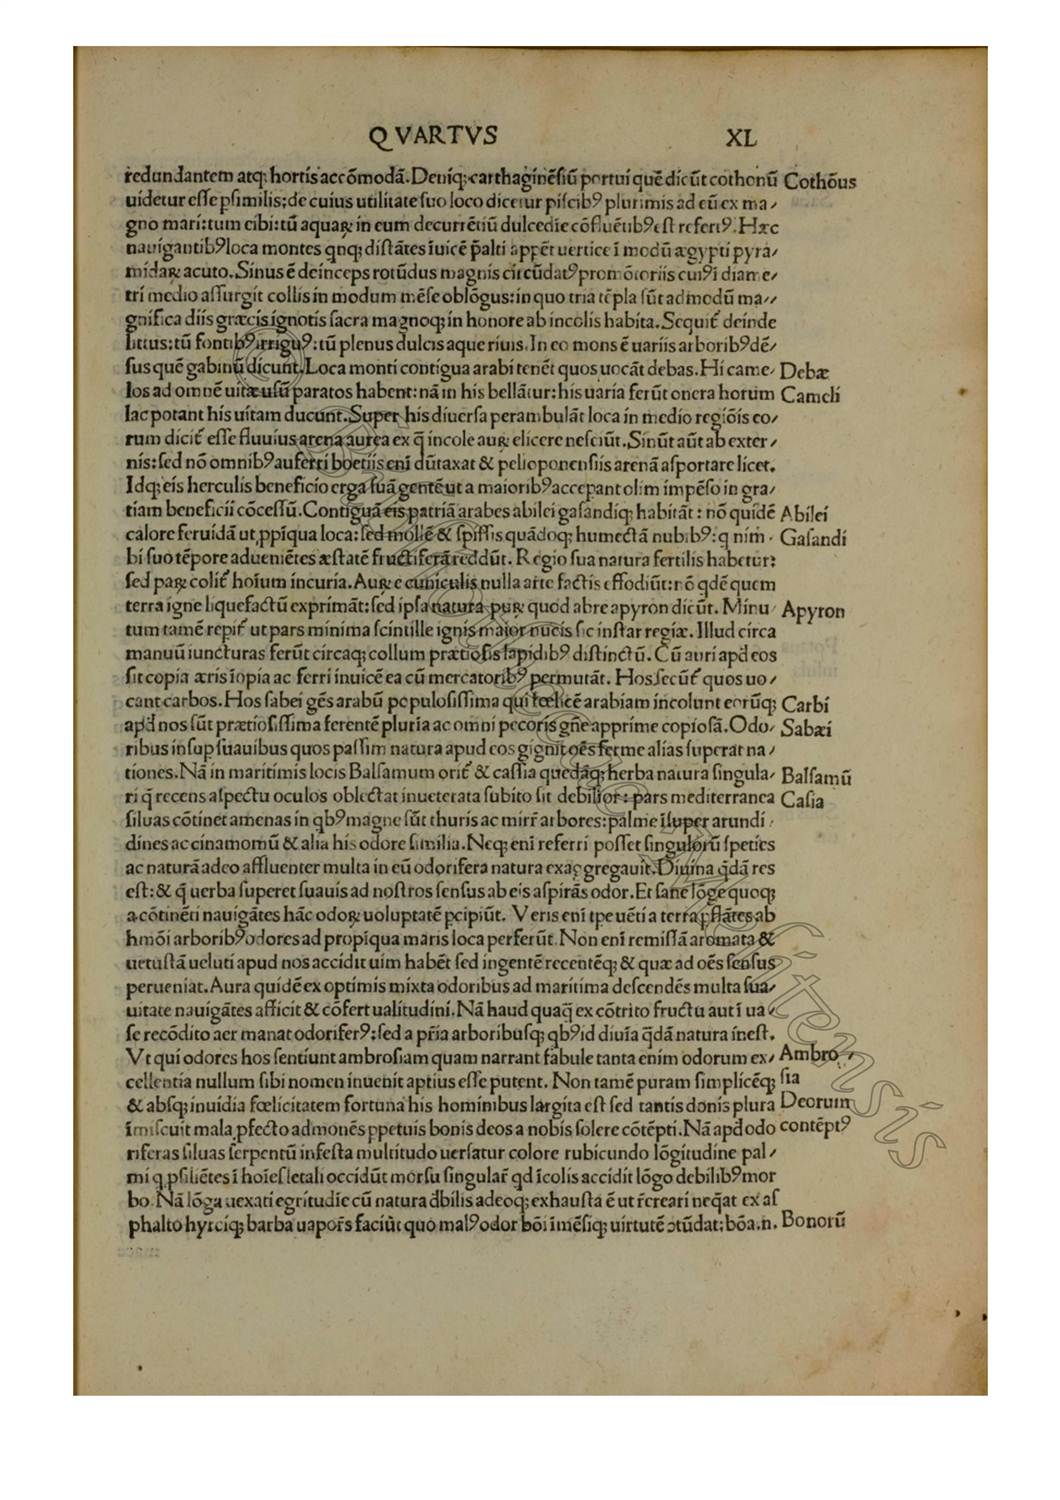 QVARTVS XL
redundantem atq; hortis accōmodā. Deniq; carthaginēsiū portui quē dicūt cothonū Cothōus
uidetur esse psimilis: de cuius utilitate suo loco dicetur piscibꝰ plurimis ad eū ex ma⸗
gno mari: tum cibi: tū aquaꝝ in eum decurrētiū dulcedie cōfluētibꝰ est refertꝰ. Hæc
nauigantibꝰ loca montes qnq; distātes īuicē p̄alti appēt uertice ī modū ægypti pyra⸗
midaꝝ acuto. Sinus ē deinceps rotūdus magnis circūdatꝰ promōtoriis cuiꝰ ī diame⸗
tri medio assurgit collis in modum mēse oblōgus: in quo tria tēpla sūt ad modū ma⸗
gnifica diis græcis ignotis sacra magnoq; in honore ab incolis habita. Sequit᷑ deinde
littus: tū fontibꝰ irriguꝰ: tū plenus dulcis aque riuis. In eo mons ē uariis arboribꝰ dē⸗
sus quē gabinū dicunt. Loca monti contigua arabi tenēt quos uocāt debas. Hi came⸗ Debæ
los ad omnē uitæ usū paratos habent: nā in his bellāt̄ur: his uaria ferūt onera horum Cameli
lac potant his uitam ducunt. Super his diuersa perambulāt loca in medio regiōis eo⸗
rum dicit᷑ esse fluuius arena aurea ex q̄ incole auꝝ elicere nesciūt. Sinūt aūt ab exter⸗
nis: sed nō omnibꝰ auferri boetiis eni dūtaxat & pelioponensiis arenā asportare licet.
Idq; eis herculis beneficio erga suā gentē ut a maioribꝰ accepant olim impēso in gra⸗
tiam beneficii cōcessū. Contiguā eis patriā arabes abilei gasandiq; habitāt: nō quidē Abilei
calore feruidā ut ꝓpīqua loca: sed mollē & spissis quādoq; humectā nubibꝰ: q nim⸗ Gasandi
bi suo tēpore aduenietes æstatē fructiferā reddūt. Regio sua natura fertilis habetur:
sed paꝝ colit᷑ hoīum incuria. Auꝝ e cuniculis nulla arte factis effodiūt: nō qdē quem
terra igne liquefactū exprimāt: sed ipsa natura puꝝ quod abre apyron dicūt. Minu⸗ Apyron
tum tamē repit᷑ ut pars minima scintille ignis maior nucis sic instar regiæ. Illud circa
manuū iuncturas ferūt circaq; collum prætiosis lapidibꝰ distinctū. Cū auri apd eos
sit copia æris īopia ac ferri inuicē ea cū mercatoribꝰ permutāt. Hos secūt᷑ quos uo⸗
cant carbos. Hos sabei gēs arabū populosissima qui fœlicē arabiam incolunt eorūq; Carbi
apd nos sūt prætiosissima ferentē pluria ac omni pecoris gn̄e apprime copiosā. Odo⸗ Sabæi
ribus insup suauibus quos passim natura apud eos gignit oēs ferme alias superat na⸗
tiones. Nā in maritimis locis Balsamum orit᷑ & cassia quedāq; herba natura singula⸗ Balsamū
ri q̄ recens aspectu oculos oblectat inueterata subito fit debilior: pars mediterranea Casia
siluas cōtinet amenas in qbꝰ magne sūt thuris ac mirr̄ arbores: palme īsuper arundi⸗
dines ac cinamomū & alia his odore similia. Neq; eni referri posset singulorū species
ac naturā adeo affluenter multa in eū odorifera natura exaggregauit. Diuina q̄dā res
est: & q̄ uerba superet suauis ad nostros sensus ab eis aspirās odor. Et sane lōge quoq;
a cōtinēti nauigātes hāc odoꝝ uoluptatē pcipiūt. Veris eni tpe uēti a terra pflātes ab
hmōi arboribꝰ odores ad propiqua maris loca perferūt. Non eni remissā aromata &
uetustā ueluti apud nos accidit uim habēt sed ingentē recentēq; & quæ ad oēs sensus
perueniat. Aura quidē ex optimis mixta odoribus ad maritima descendēs multa sua⸗
uitate nauigātes afficit & cōfert ualitudini. Nā haud quaq̄ ex cōtrito fructu aut ī ua⸗
se recōdito aer manat odoriferꝰ: sed a pr̄ia arboribusq; qbꝰ id diuia q̄dā natura ineft.
Vt qui odores hos sentiunt ambrosiam quam narrant fabule tanta enim odorum ex⸗ Ambro⸗
cellentia nullum sibi nomen inuenit aptius esse putent. Non tamē puram simplicēq; sia
& absq; inuidia fœlicitatem fortuna his hominibus largita est sed tantis donis plura Deorum
īmiscuit mala pfecto admonēs ppetuis bonis deos a nobis solere cōtēpti. Nā apd odo contēptꝰ
riferas siluas serpentū infesta multitudo uersatur colore rubicundo lōgitudine pal⸗
mi q psiliētes ī hoīes letali occidūt morsu singular̄ qd īcolis accidit lōgo debilibꝰ mor
bo. Nā lōga uexati egritudie cū natura dbilis adeoq; exhausta ē ut r̄creari neqat ex as
phalto hyrciq; barba uapor̄s faciūt quo malꝰ odor bōi īmēsiq; uirtutē ↄtūdat: bōa .n. Bonorū